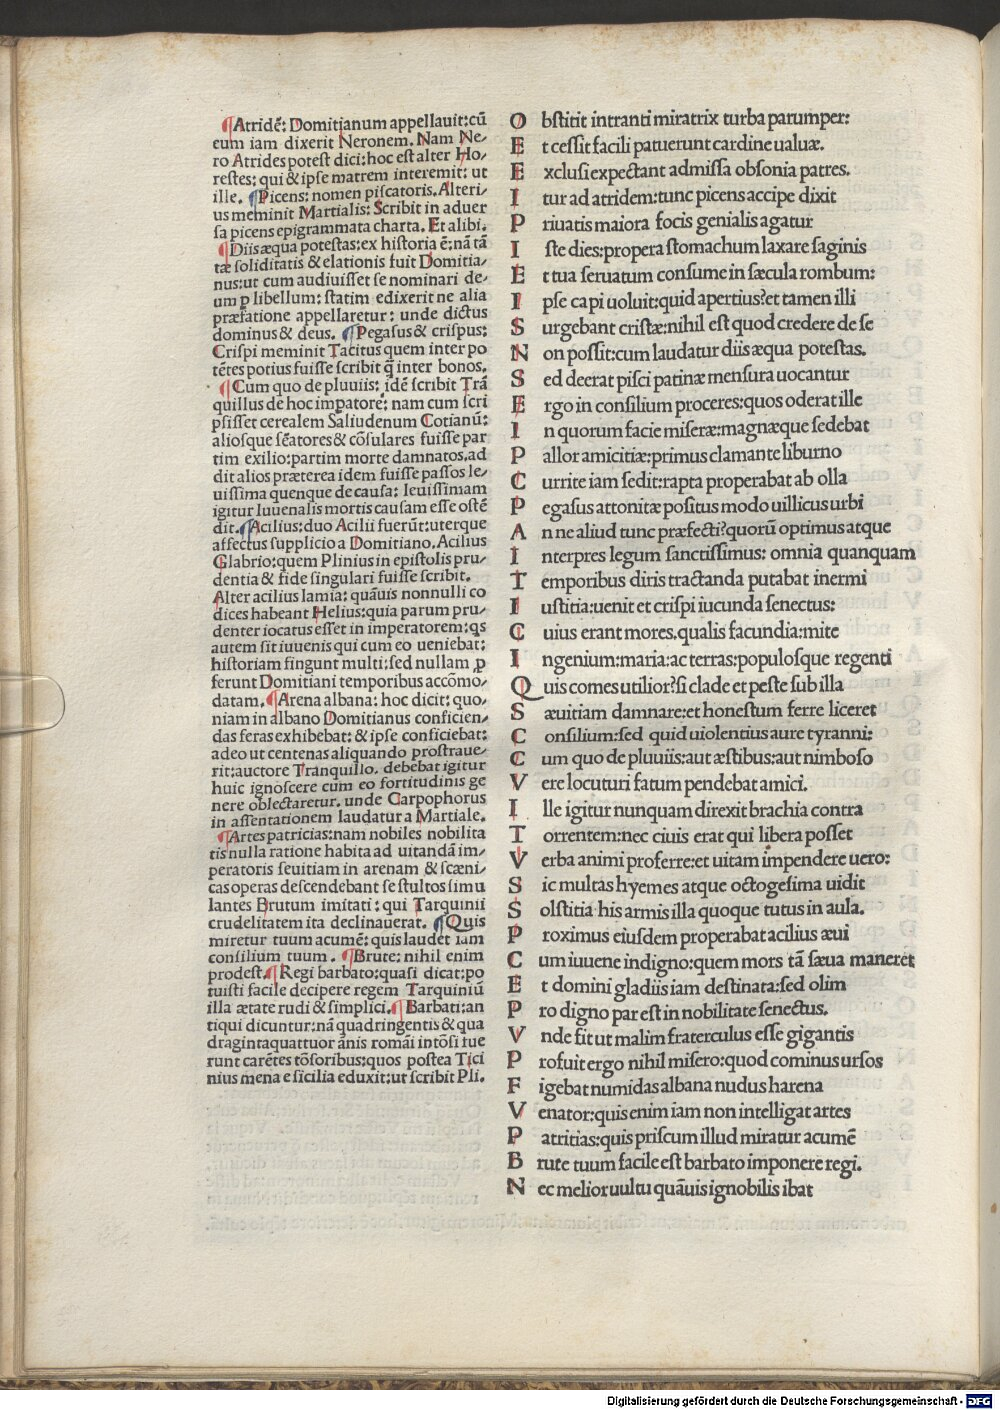 ¶Atridē: Domitianum appellauit: cū
eum iam dixerit Neronem. Nam Ne⸗
ro Atrides potest dici: hoc est alter Ho⸗
restes: qui & ipse matrem interemit: ut
ille. ¶Picens: nomen piscatoris. Alteri⸗
us meminit Martialis: Scribit in aduer
sa picens epigrammata charta. Et alibi.
¶Diis æqua potestas: ex historia ē: nā tā
tæ soliditatis & elationis fuit Domitia⸗
nus: ut cum audiuisset se nominari de⸗
um p libellum: statim edixerit ne alia
præfatione appellaretur: unde dictus
dominus & deus. ¶Pegasus & crispus:
Crispi meminit Tacitus quem inter po
tētes potius fuisse scribit q̄ inter bonos.
¶Cum quo de pluuiis: idē scribit Trā
quillus de hoc impatorē: nam cum scri
psisset cerealem Saliudenum Cotianū:
aliosque sēatores & cōsulares fuisse par
tim exilio: partim morte damnatos, ad
dit alios præterea idem fuisse passos le⸗
uissima quenque de causa: leuissimam
igitur Iuuenalis mortis causam esse ostē
dit. ¶Acilius: duo Acilii fuerūt: uterque
affectus supplicio a Domitiano. Acilius
Glabrio: quem Plinius in epistolis pru⸗
dentia & fide singulari fuisse scribit.
Alter acilius lamia: quāuis nonnulli co
dices habeant Helius: quia parum pru⸗
denter iocatus esset in imperatorem: qs
autem sit iuuenis qui cum eo ueniebat:
historiam fingunt multi: sed nullam p
ferunt Domitiani temporibus accōmo⸗
datam. ¶Arena albana: hoc dicit: quo⸗
niam in albano Domitianus conficien⸗
das feras exhibebat: & ipse conficiebat:
adeo ut centenas aliquando prostraue⸗
rit: auctore Tranquillo. debebat igitur
huic ignoscere cum eo fortitudinis ge
nere oblectaretur. unde Carpophorus
in assentationem laudatur a Martiale.
¶Artes patricias: nam nobiles nobilita
tis nulla ratione habita ad uitandā im⸗
peratoris seuitiam in arenam & scæni⸗
cas operas descendebant se stultos simu
lantes Brutum imitati: qui Tarquinii
crudelitatem ita declinauerat. ¶Quis
miretur tuum acumē: quis laudet iam
consilium tuum. ¶Brute: nihil enim
prodest. ¶Regi barbato: quasi dicat: po
tuisti facile decipere regem Tarquiniū
illa ætate rudi & simplici. ¶Barbati: an
tiqui dicuntur: nā quadringentis & qua
draginta quattuor ānis romāi intōsi fue
runt carētes tōsoribus: quos postea Tici
nius mena e sicilia eduxit: ut scribit Pli.
O bstitit intranti miratrix turba parumper:
E t cessit facili patuerunt cardine ualuæ.
E xclusi expectant admissa obsonia patres.
I tur ad atridem: tunc picens accipe dixit
P riuatis maiora focis genialis agatur
I ste dies: propera stomachum laxare saginis
E t tua seruatum consume in sæcula rombum:
I pse capi uoluit: quid apertius? et tamen illi
S urgebant cristæ: nihil est quod credere de se
N on possit: cum laudatur diis æqua potestas.
S ed deerat pisci patinæ mensura uocantur
E rgo in consilium proceres: quos oderat ille
I n quorum facie miseræ: magnæque sedebat
P allor amicitiæ: primus clamante liburno
C urrite iam sedit: rapta properabat ab olla
P egasus attonitæ positus modo uillicus urbi
A n ne aliud tunc præfecti? quorū optimus atque
I nterpres legum sanctissimus: omnia quanquam
T emporibus diris tractanda putabat inermi
I ustitia: uenit et crispi iucunda senectus:
C uius erant mores, qualis facundia: mite
I ngenium: maria: ac terras: populosque regenti
Q uis comes utilior? si clade et peste sub illa
S æuitiam damnare: et honestum ferre liceret
C onsilium: sed quid uiolentius aure tyranni:
C um quo de pluuiis: aut æstibus: aut nimboso
V ere locuturi fatum pendebat amici.
I lle igitur nunquam direxit brachia contra
T orrentem: nec ciuis erat qui libera posset
V erba animi proferre: et uitam impendere uero:
S ic multas hyemes atque octogesima uidit
S olstitia his armis illa quoque tutus in aula.
P roximus eiusdem properabat acilius æui
C um iuuene indigno: quem mors tā sæua maneret
E t domini gladiis iam destinata: sed olim
P ro digno par est in nobilitate senectus.
V nde fit ut malim fraterculus esse gigantis
P rofuit ergo nihil misero: quod cominus ursos
F igebat numidas albana nudus harena
V enator: quis enim iam non intelligat artes
P atritias: quis priscum illud miratur acumē
B rute tuum facile est barbato imponere regi.
N ec melior uultu quāuis ignobilis ibat
Digitalisierung gefördert durch die Deutsche Forschungsgemeinschaft - DFG